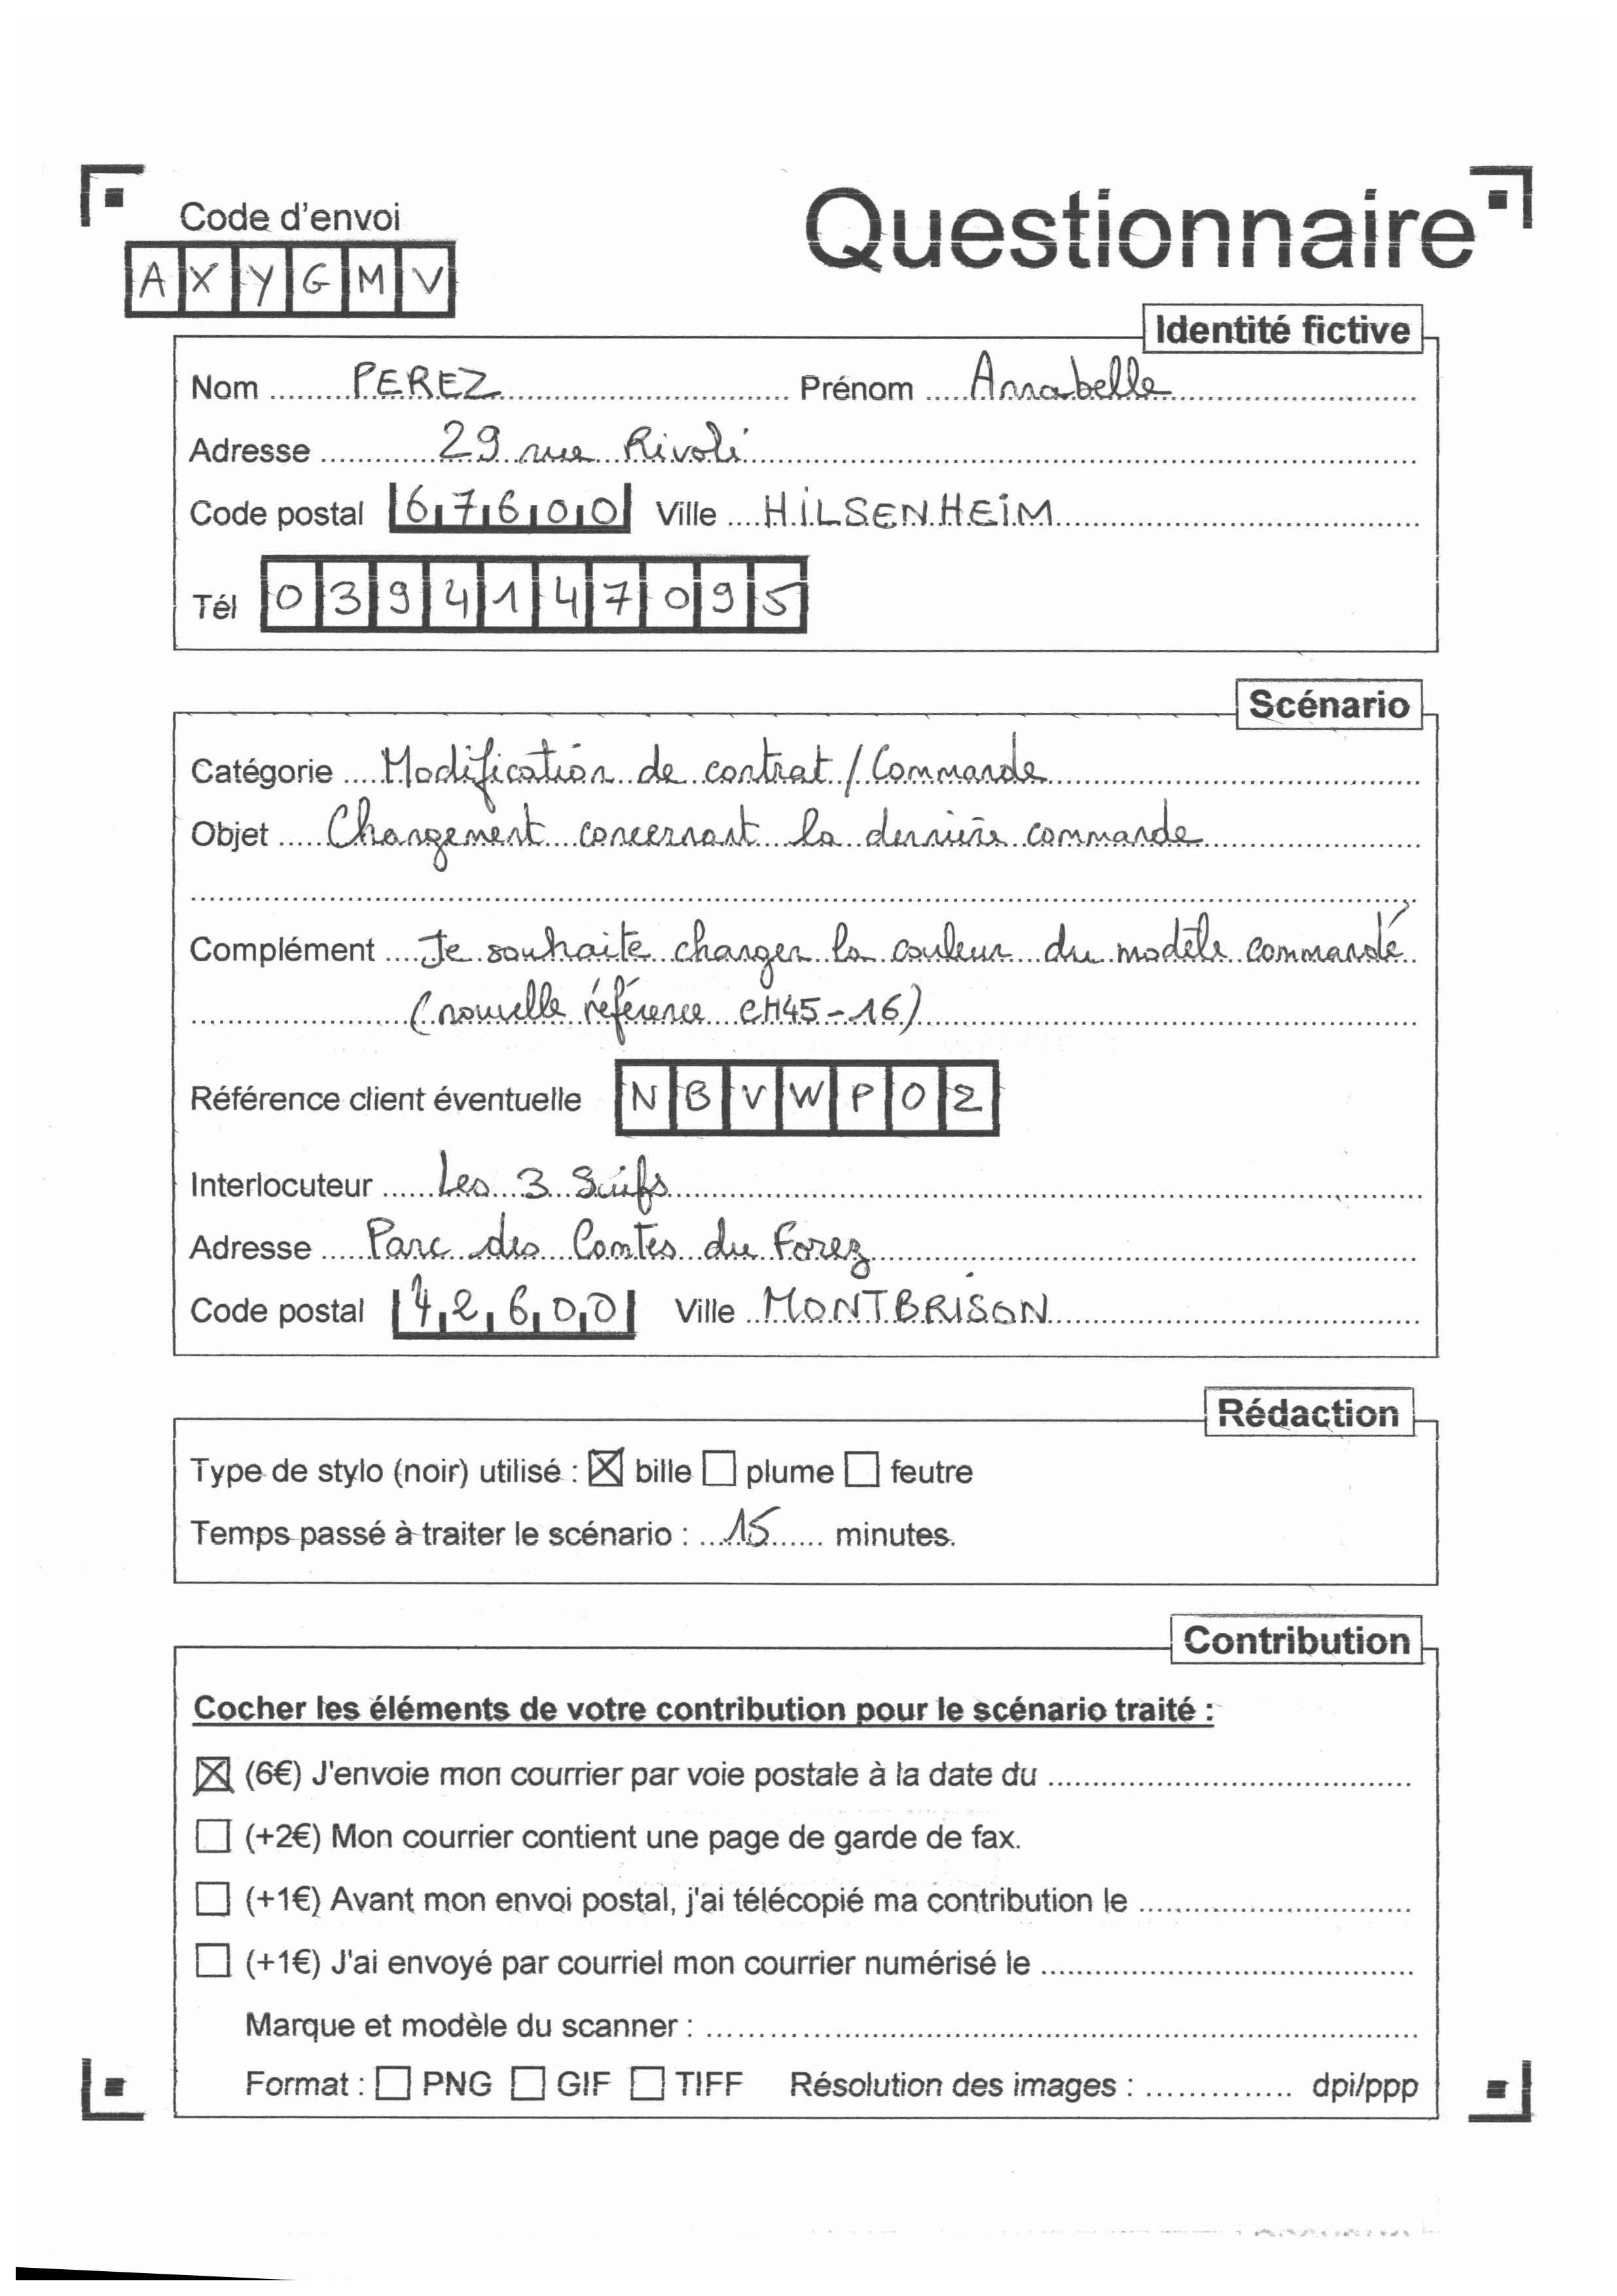 Code d'envoi
Questionnaire
A X Y G M V
Identité fictive
Nom PEREZ Prénom Annabelle
Adresse 29 rue Rivoli
Code postal 67600 Ville HILSENHEIM
Tél 0394147095
Scénario
Catégorie Modification de contrat / Commande
Objet Changement concernant la dernière commande
Complément Je souhaite changer la couleur du modèle commandé
(nouvelle référence CH45-16)
Référence client éventuelle NBVWP02
Interlocuteur Les 3 Suifs
Adresse Parc des Comtes du Forez
Code postal 42600 Ville MONTBRISON
Rédaction
Type de stylo (noir) utilisé : ☒ bille ☐ plume ☐ feutre
Temps passé à traiter le scénario : 15 minutes.
Contribution
Cocher les éléments de votre contribution pour le scénario traité :
☒ (6€) J'envoie mon courrier par voie postale à la date du
☐ (+2€) Mon courrier contient une page de garde de fax.
☐ (+1€) Avant mon envoi postal, j'ai télécopié ma contribution le
☐ (+1€) J'ai envoyé par courriel mon courrier numérisé le
Marque et modèle du scanner :
Format : ☐ PNG ☐ GIF ☐ TIFF Résolution des images : dpi/ppp